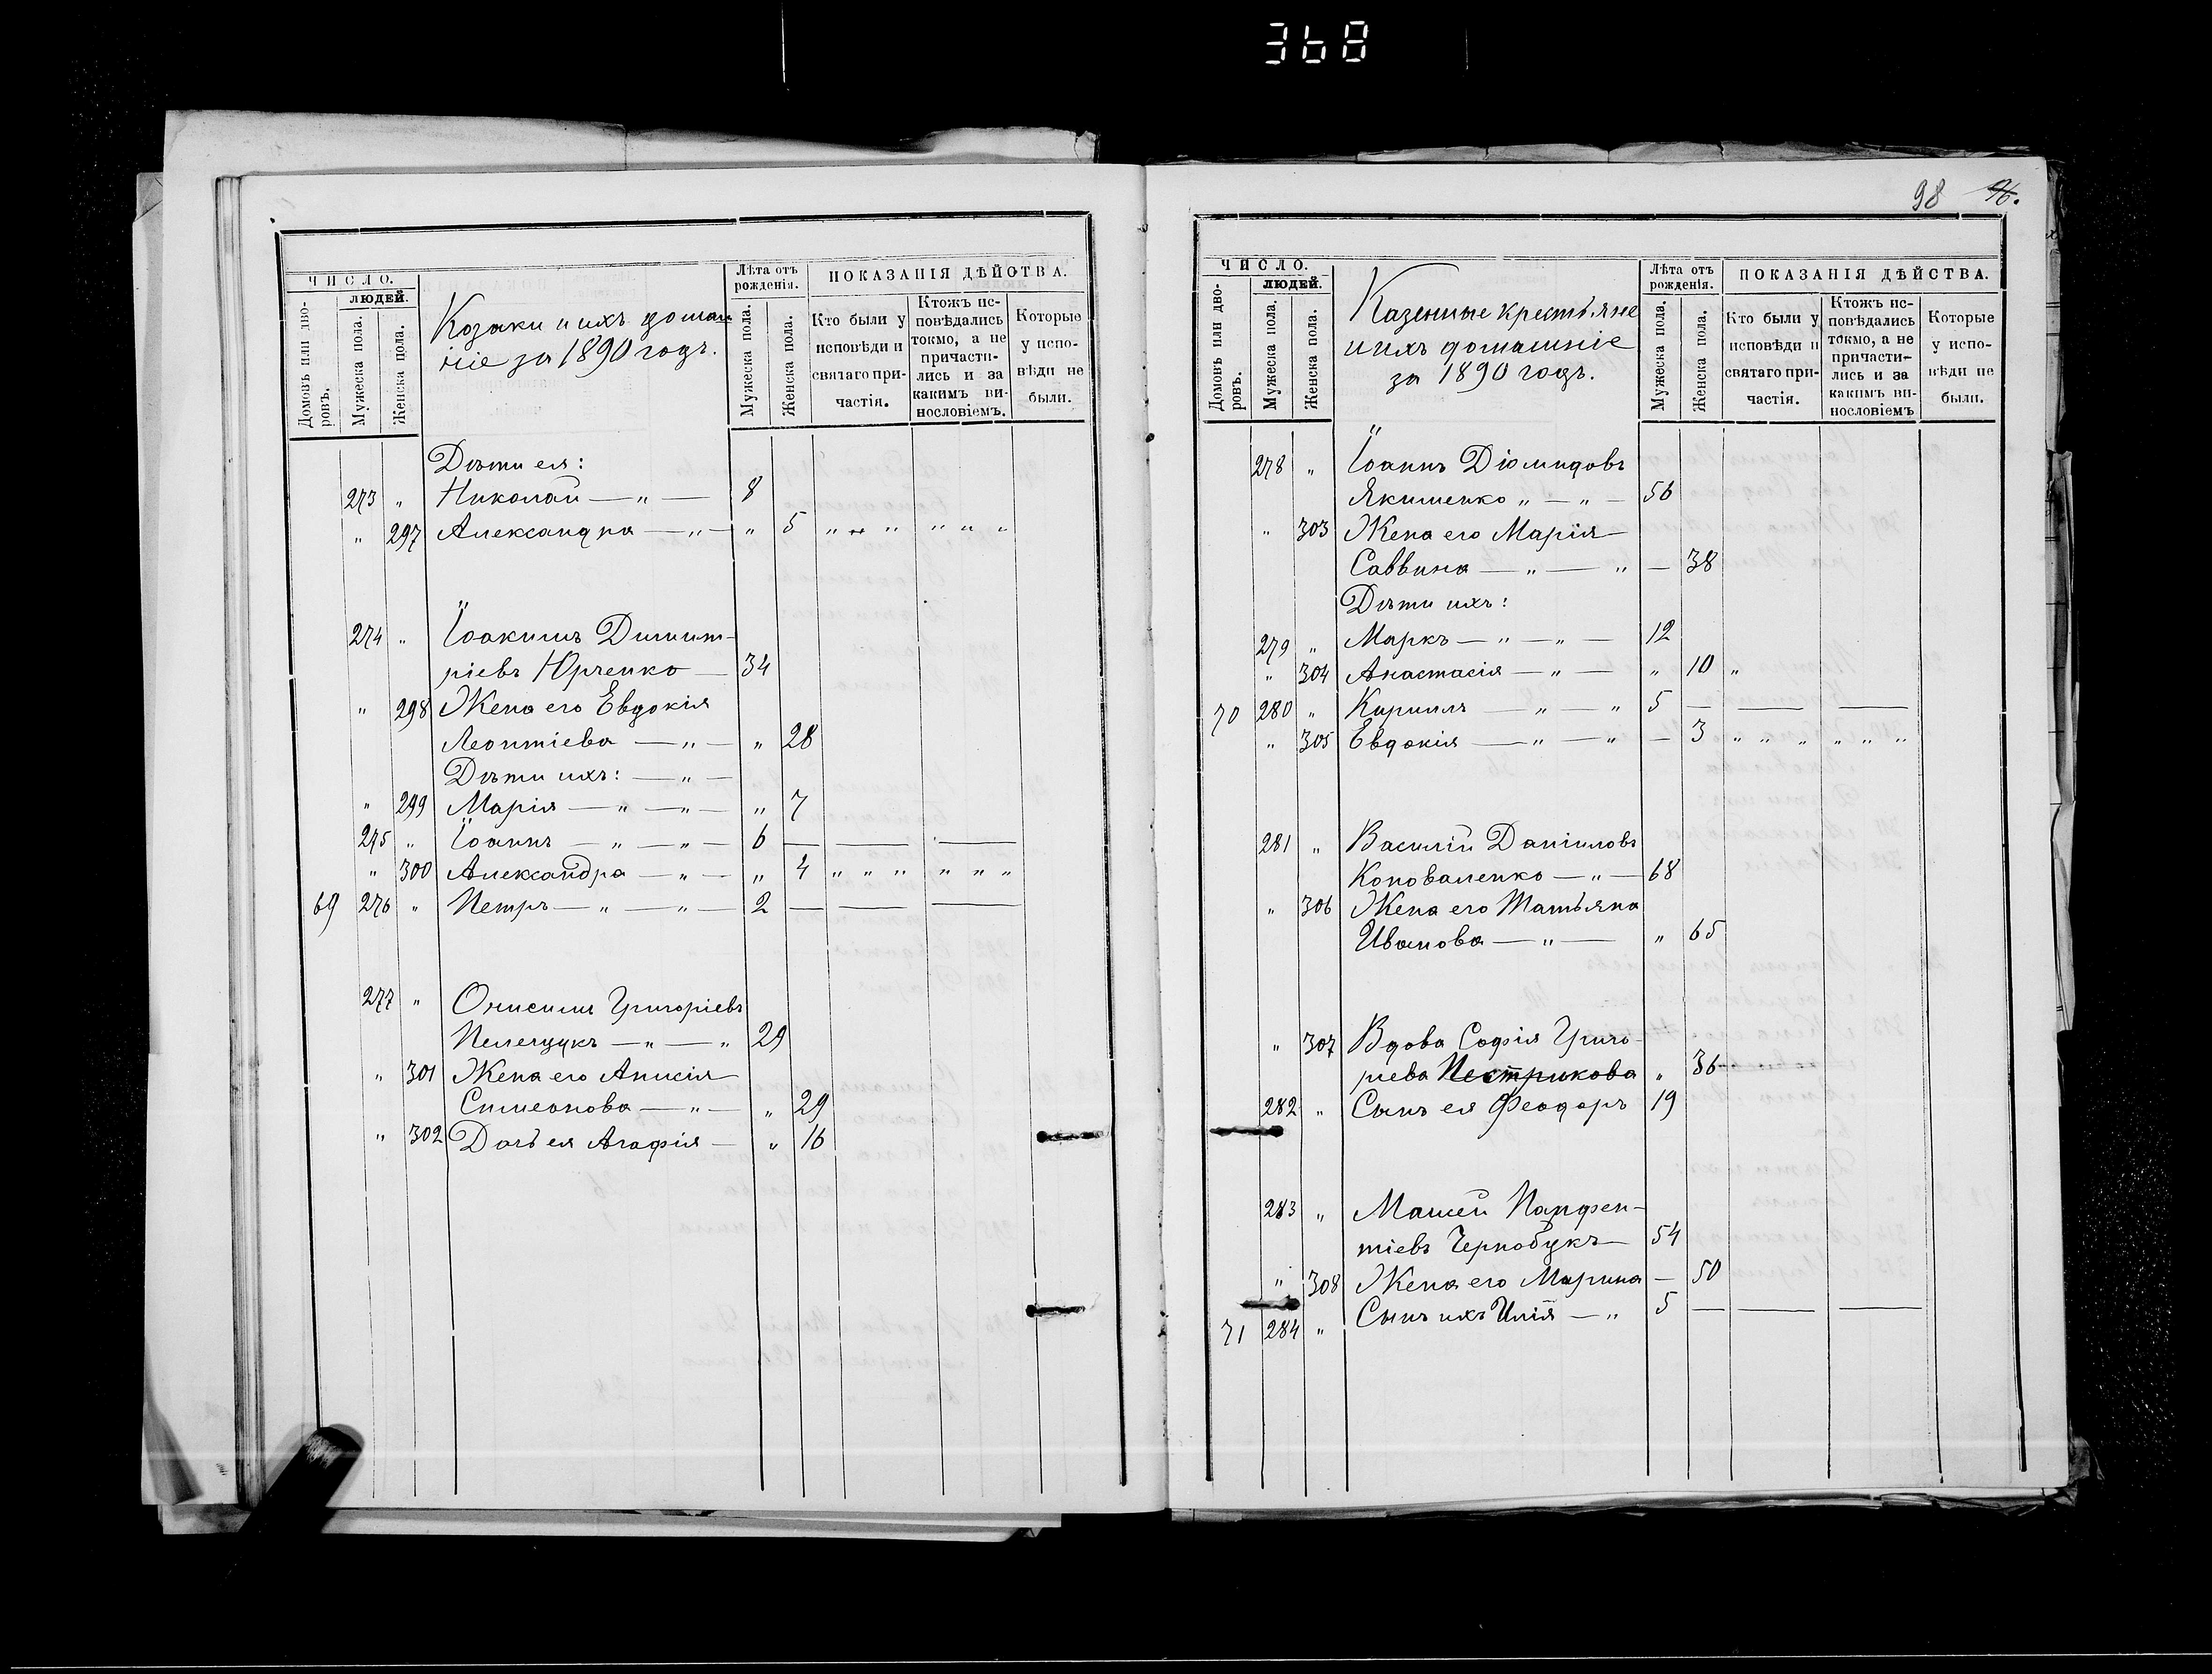 368
ЧИСЛО.
Домовъ или дво-
ровъ.
ЛЮДЕЙ.
Мужеска пола.
Женска пола.
Козаки и ихъ домаш
ніе за 1890 годъ.
Лѣта отъ
рожденія.
Мужеска пола.
Женска пола.
ПОКАЗАНІЯ ДѢЙСТВА.
Кто были у
исповѣди и
святаго при-
частія.
Ктожъ ис-
повѣдались
токмо, а не
причасти-
лись и за
какимъ ви-
нословіемъ.
Которые
у испо-
вѣди не
были.
Дѣти ея:
273 „ Николай — „ — 8
„ 297 Александра — „ — „ 5 „ „ „ „ „ „
274 „ Іоакимъ Димит-
ріевъ Юрченко — 34
„ 298 Жена его Евдокія
Леонтіева — „ — „ 28
Дѣти ихъ: — „ —
„ 299 Марія — „ — „ — „ 7
275 „ Іоаннъ — „ — „ — 6 — — —
„ 300 Александра — „ — „ 4 „ „ „ „ „ „
69 276 „ Петръ — „ — „ — 2 — — —
277 „ Онисимъ Григоріевъ
Пелещукъ — „ — „ 29
„ 301 Жена его Анисія
Симеонова — „ — „ 29
„ 302 Дочь ея Агафія — „ 16
98 96.
ЧИСЛО.
Домовъ или дво-
ровъ.
ЛЮДЕЙ.
Мужеска пола.
Женска пола.
Казенные крестьяне
и ихъ домашніе
за 1890 годъ.
Лѣта отъ
рожденія.
Мужеска пола.
Женска пола.
ПОКАЗАНІЯ ДѢЙСТВА.
Кто были у
исповѣди и
святаго при-
частія.
Ктожъ ис-
повѣдались
токмо, а не
причасти-
лись и за
какимъ ви-
нословіемъ
Которые
у испо-
вѣди не
были.
278 „ Іоаннъ Діомидовъ
Якименко „ — „ — 56
„ 303 Жена его Марія —
Саввина — „ — „ — 38
Дѣти ихъ:
279 „ Маркъ — „ — „ — 12
„ 304 Анастасія — „ — „ 10 „
70 280 „ Кириллъ — „ — „ 5 — — —
„ 305 Евдокія — „ — „ — 3 „ „ „ „ „ „
281 „ Василій Даніиловъ
Коноваленко — „ — 68
„ 306 Жена его Татьяна
Иванова — „ — „ 65
„ 307 Вдова Софія Григо-
рiева Пестрикова „ 36
282 „ Сынъ ея Феодоръ 19
283 „ Матѳей Парфен-
тіевъ Чернобукъ — 54
„ 308 Жена его Марина — 50
71 284 „ Сынъ ихъ Илія — „ 5 — — —